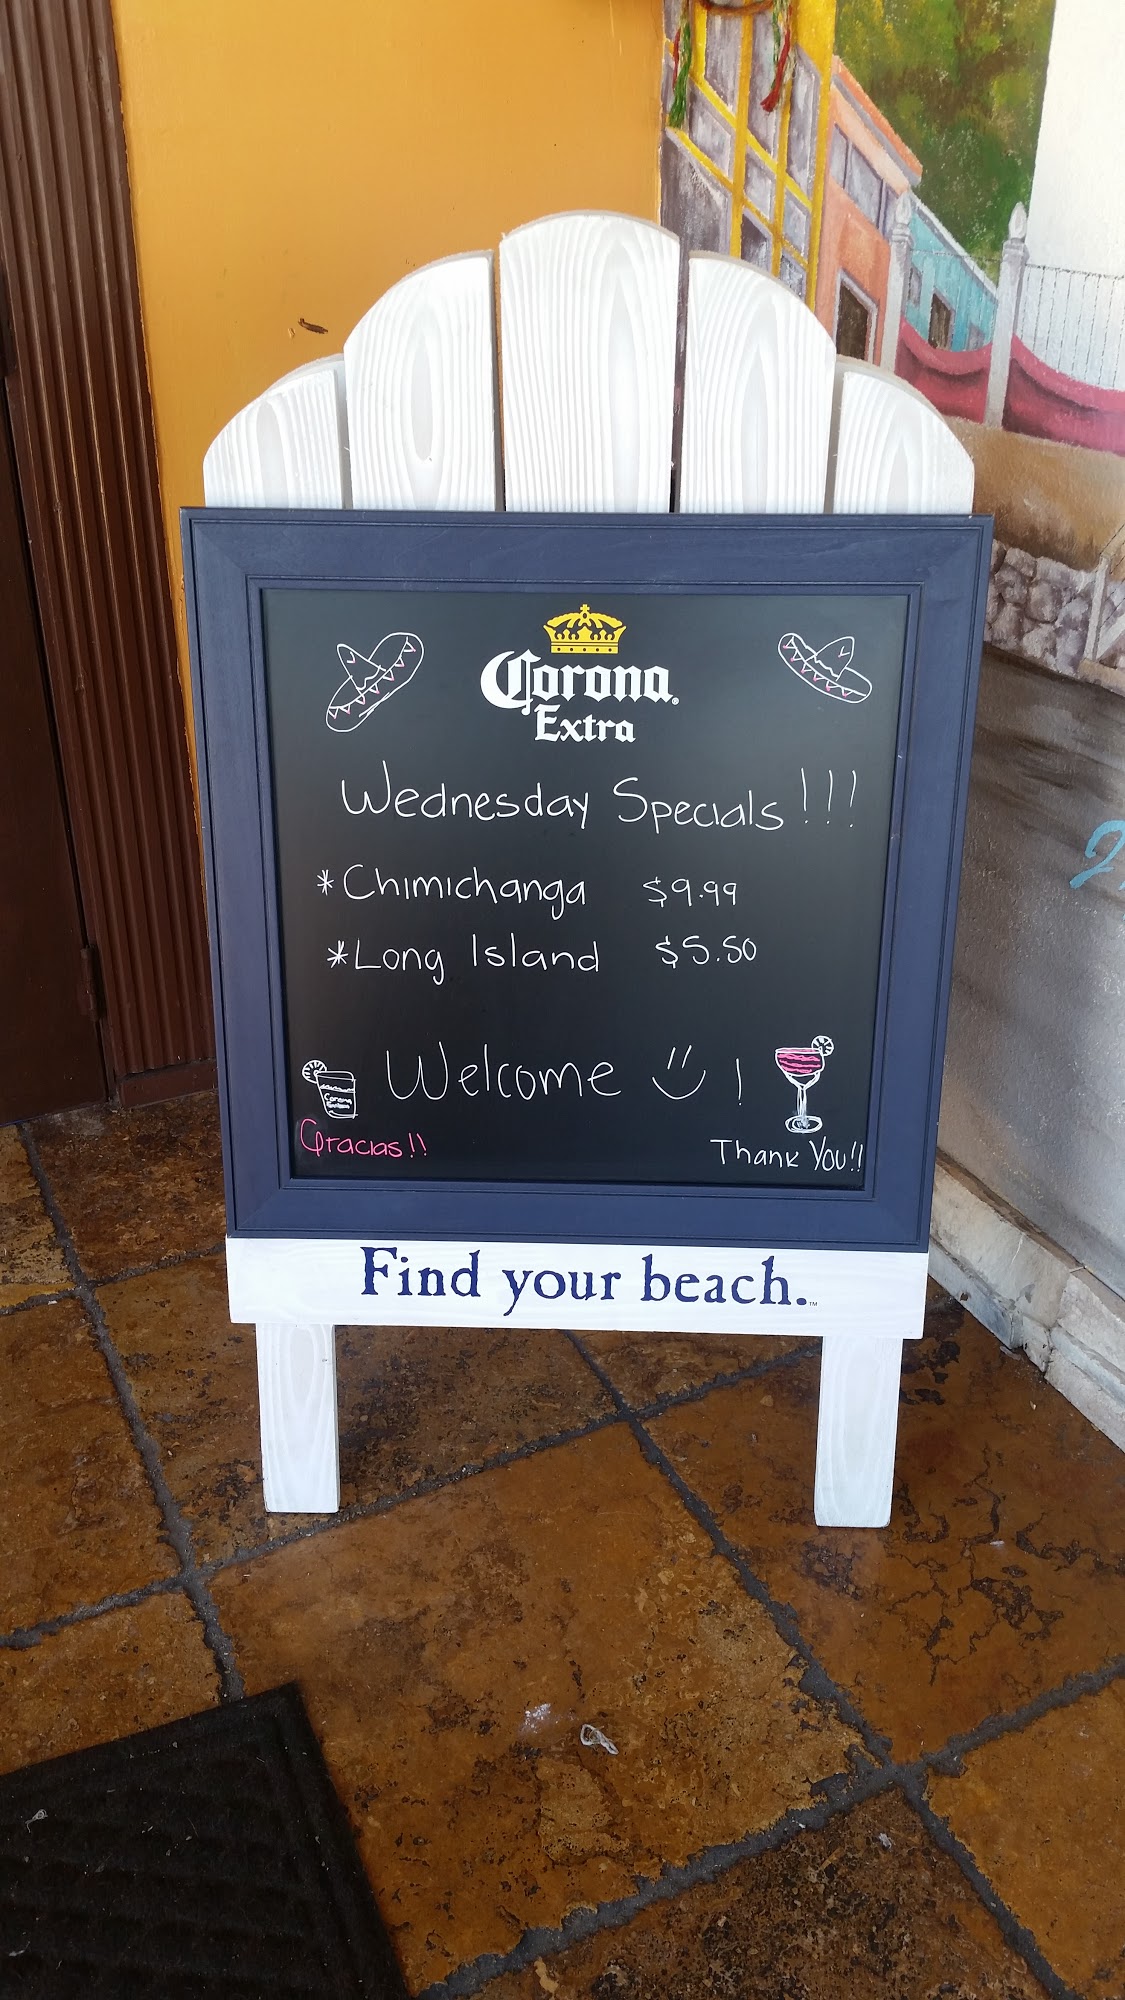 Corona
Extra
Wednesday Specials!!!
*Chimichanga $9.99
*Long Island $5.50
Welcome !
Corona
Gracias!!
Thank You!!
Find your beach.™